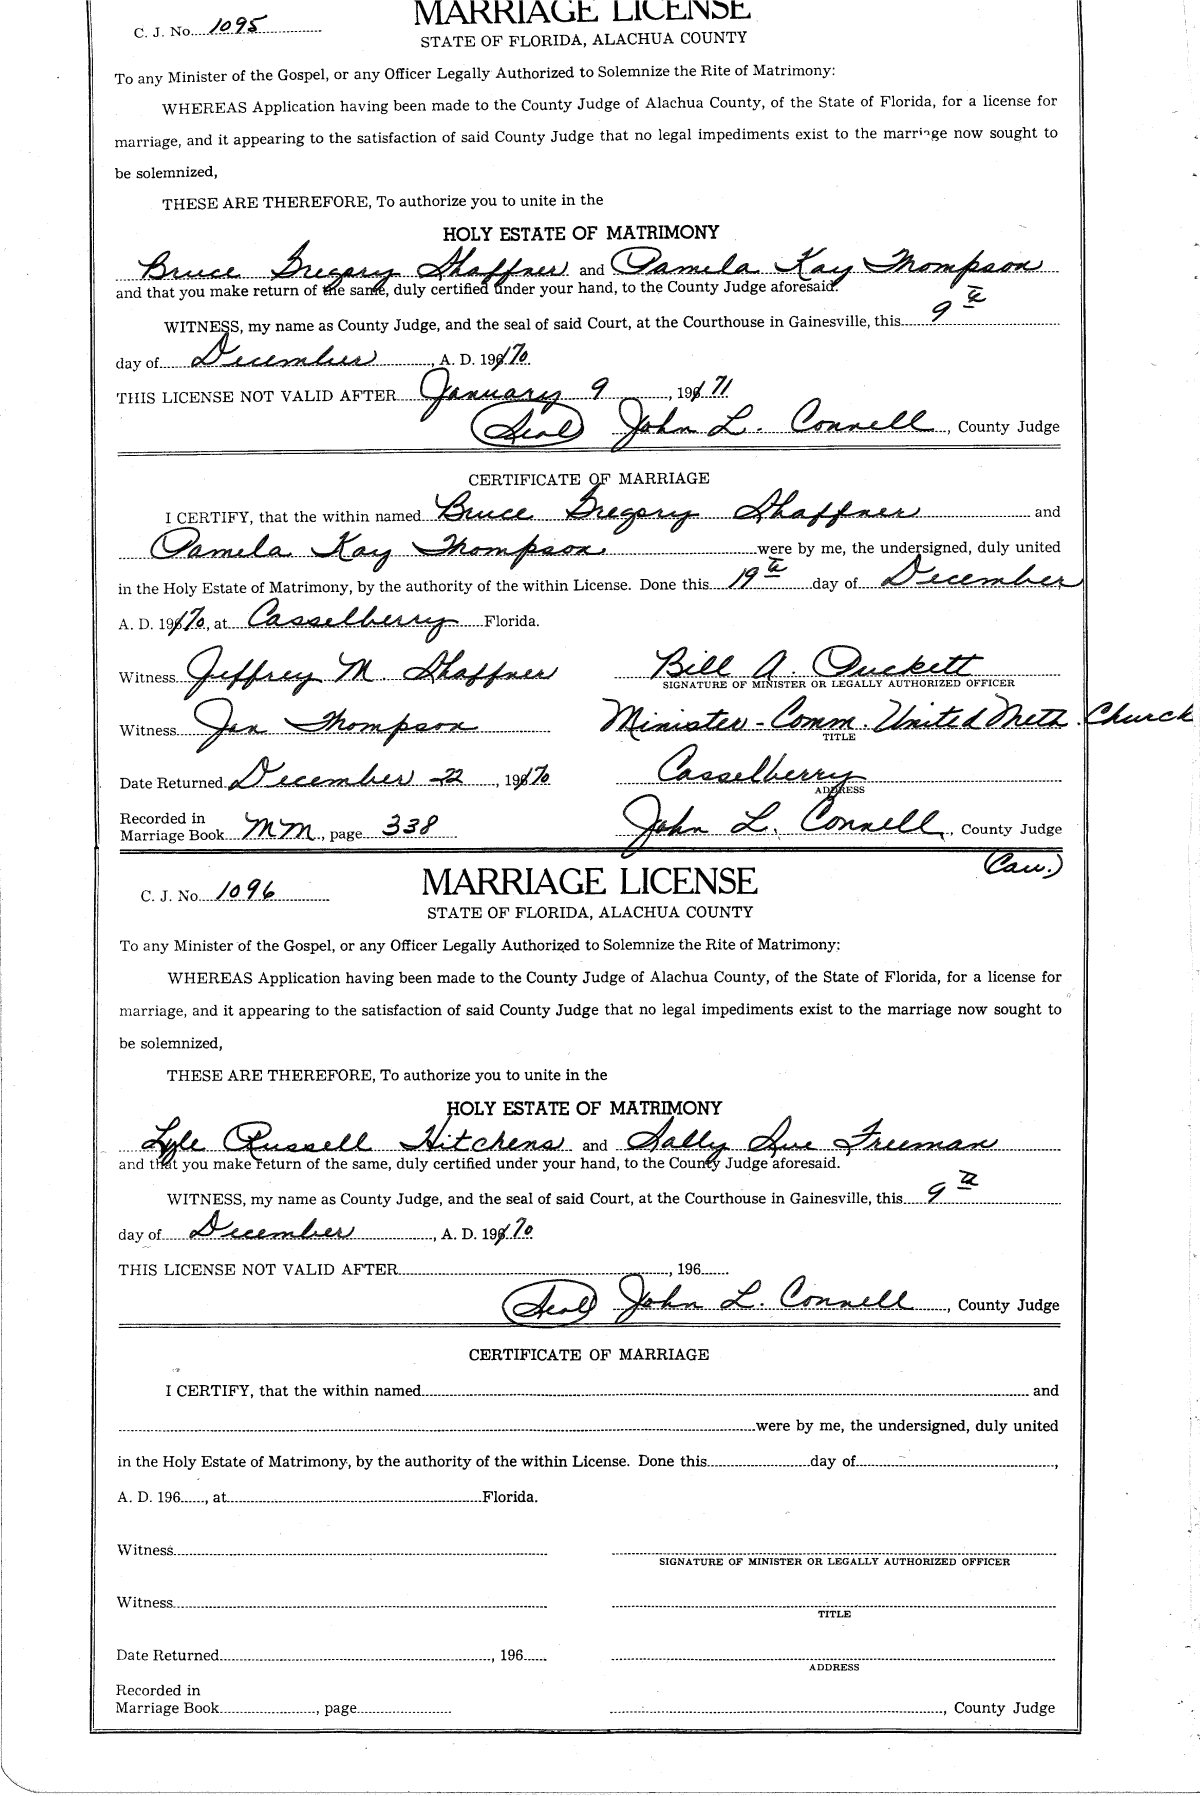 C. J. No. 1095
MARRIAGE LICENSE
STATE OF FLORIDA, ALACHUA COUNTY
To any Minister of the Gospel, or any Officer Legally Authorized to Solemnize the Rite of Matrimony:
WHEREAS Application having been made to the County Judge of Alachua County, of the State of Florida, for a license for
marriage, and it appearing to the satisfaction of said County Judge that no legal impediments exist to the marriage now sought to
be solemnized,
THESE ARE THEREFORE, To authorize you to unite in the
HOLY ESTATE OF MATRIMONY
Bruce Gregory Shaffner and Pamela Kay Thompson
and that you make return of the same, duly certified under your hand, to the County Judge aforesaid.
WITNESS, my name as County Judge, and the seal of said Court, at the Courthouse in Gainesville, this 9th
day of December, A. D. 1970
THIS LICENSE NOT VALID AFTER January 9, 1971
(Seal) John L. Connell, County Judge
CERTIFICATE OF MARRIAGE
I CERTIFY, that the within named Bruce Gregory Shaffner and
Pamela Kay Thompson were by me, the undersigned, duly united
in the Holy Estate of Matrimony, by the authority of the within License. Done this 19th day of December
A. D. 1970, at Casselberry Florida.
Witness Jeffrey M. Shaffner Bill A. Puckett
SIGNATURE OF MINISTER OR LEGALLY AUTHORIZED OFFICER
Witness Jan Thompson Minister-Comm. United Meth. Church
TITLE
Date Returned December 22, 1970 Casselberry
ADDRESS
Recorded in
Marriage Book MM, page 338 John L. Connell, County Judge
(Cau.)
C. J. No. 1096
MARRIAGE LICENSE
STATE OF FLORIDA, ALACHUA COUNTY
To any Minister of the Gospel, or any Officer Legally Authorized to Solemnize the Rite of Matrimony:
WHEREAS Application having been made to the County Judge of Alachua County, of the State of Florida, for a license for
marriage, and it appearing to the satisfaction of said County Judge that no legal impediments exist to the marriage now sought to
be solemnized,
THESE ARE THEREFORE, To authorize you to unite in the
HOLY ESTATE OF MATRIMONY
Lyle Russell Hitchens and Sally Sue Freeman
and that you make return of the same, duly certified under your hand, to the County Judge aforesaid.
WITNESS, my name as County Judge, and the seal of said Court, at the Courthouse in Gainesville, this 9th
day of December, A. D. 1970
THIS LICENSE NOT VALID AFTER, 196
(Seal) John L. Connell, County Judge
CERTIFICATE OF MARRIAGE
I CERTIFY, that the within named and
were by me, the undersigned, duly united
in the Holy Estate of Matrimony, by the authority of the within License. Done this day of ,
A. D. 196, at Florida.
Witness
SIGNATURE OF MINISTER OR LEGALLY AUTHORIZED OFFICER
Witness
TITLE
Date Returned, 196
ADDRESS
Recorded in
Marriage Book, page , County Judge